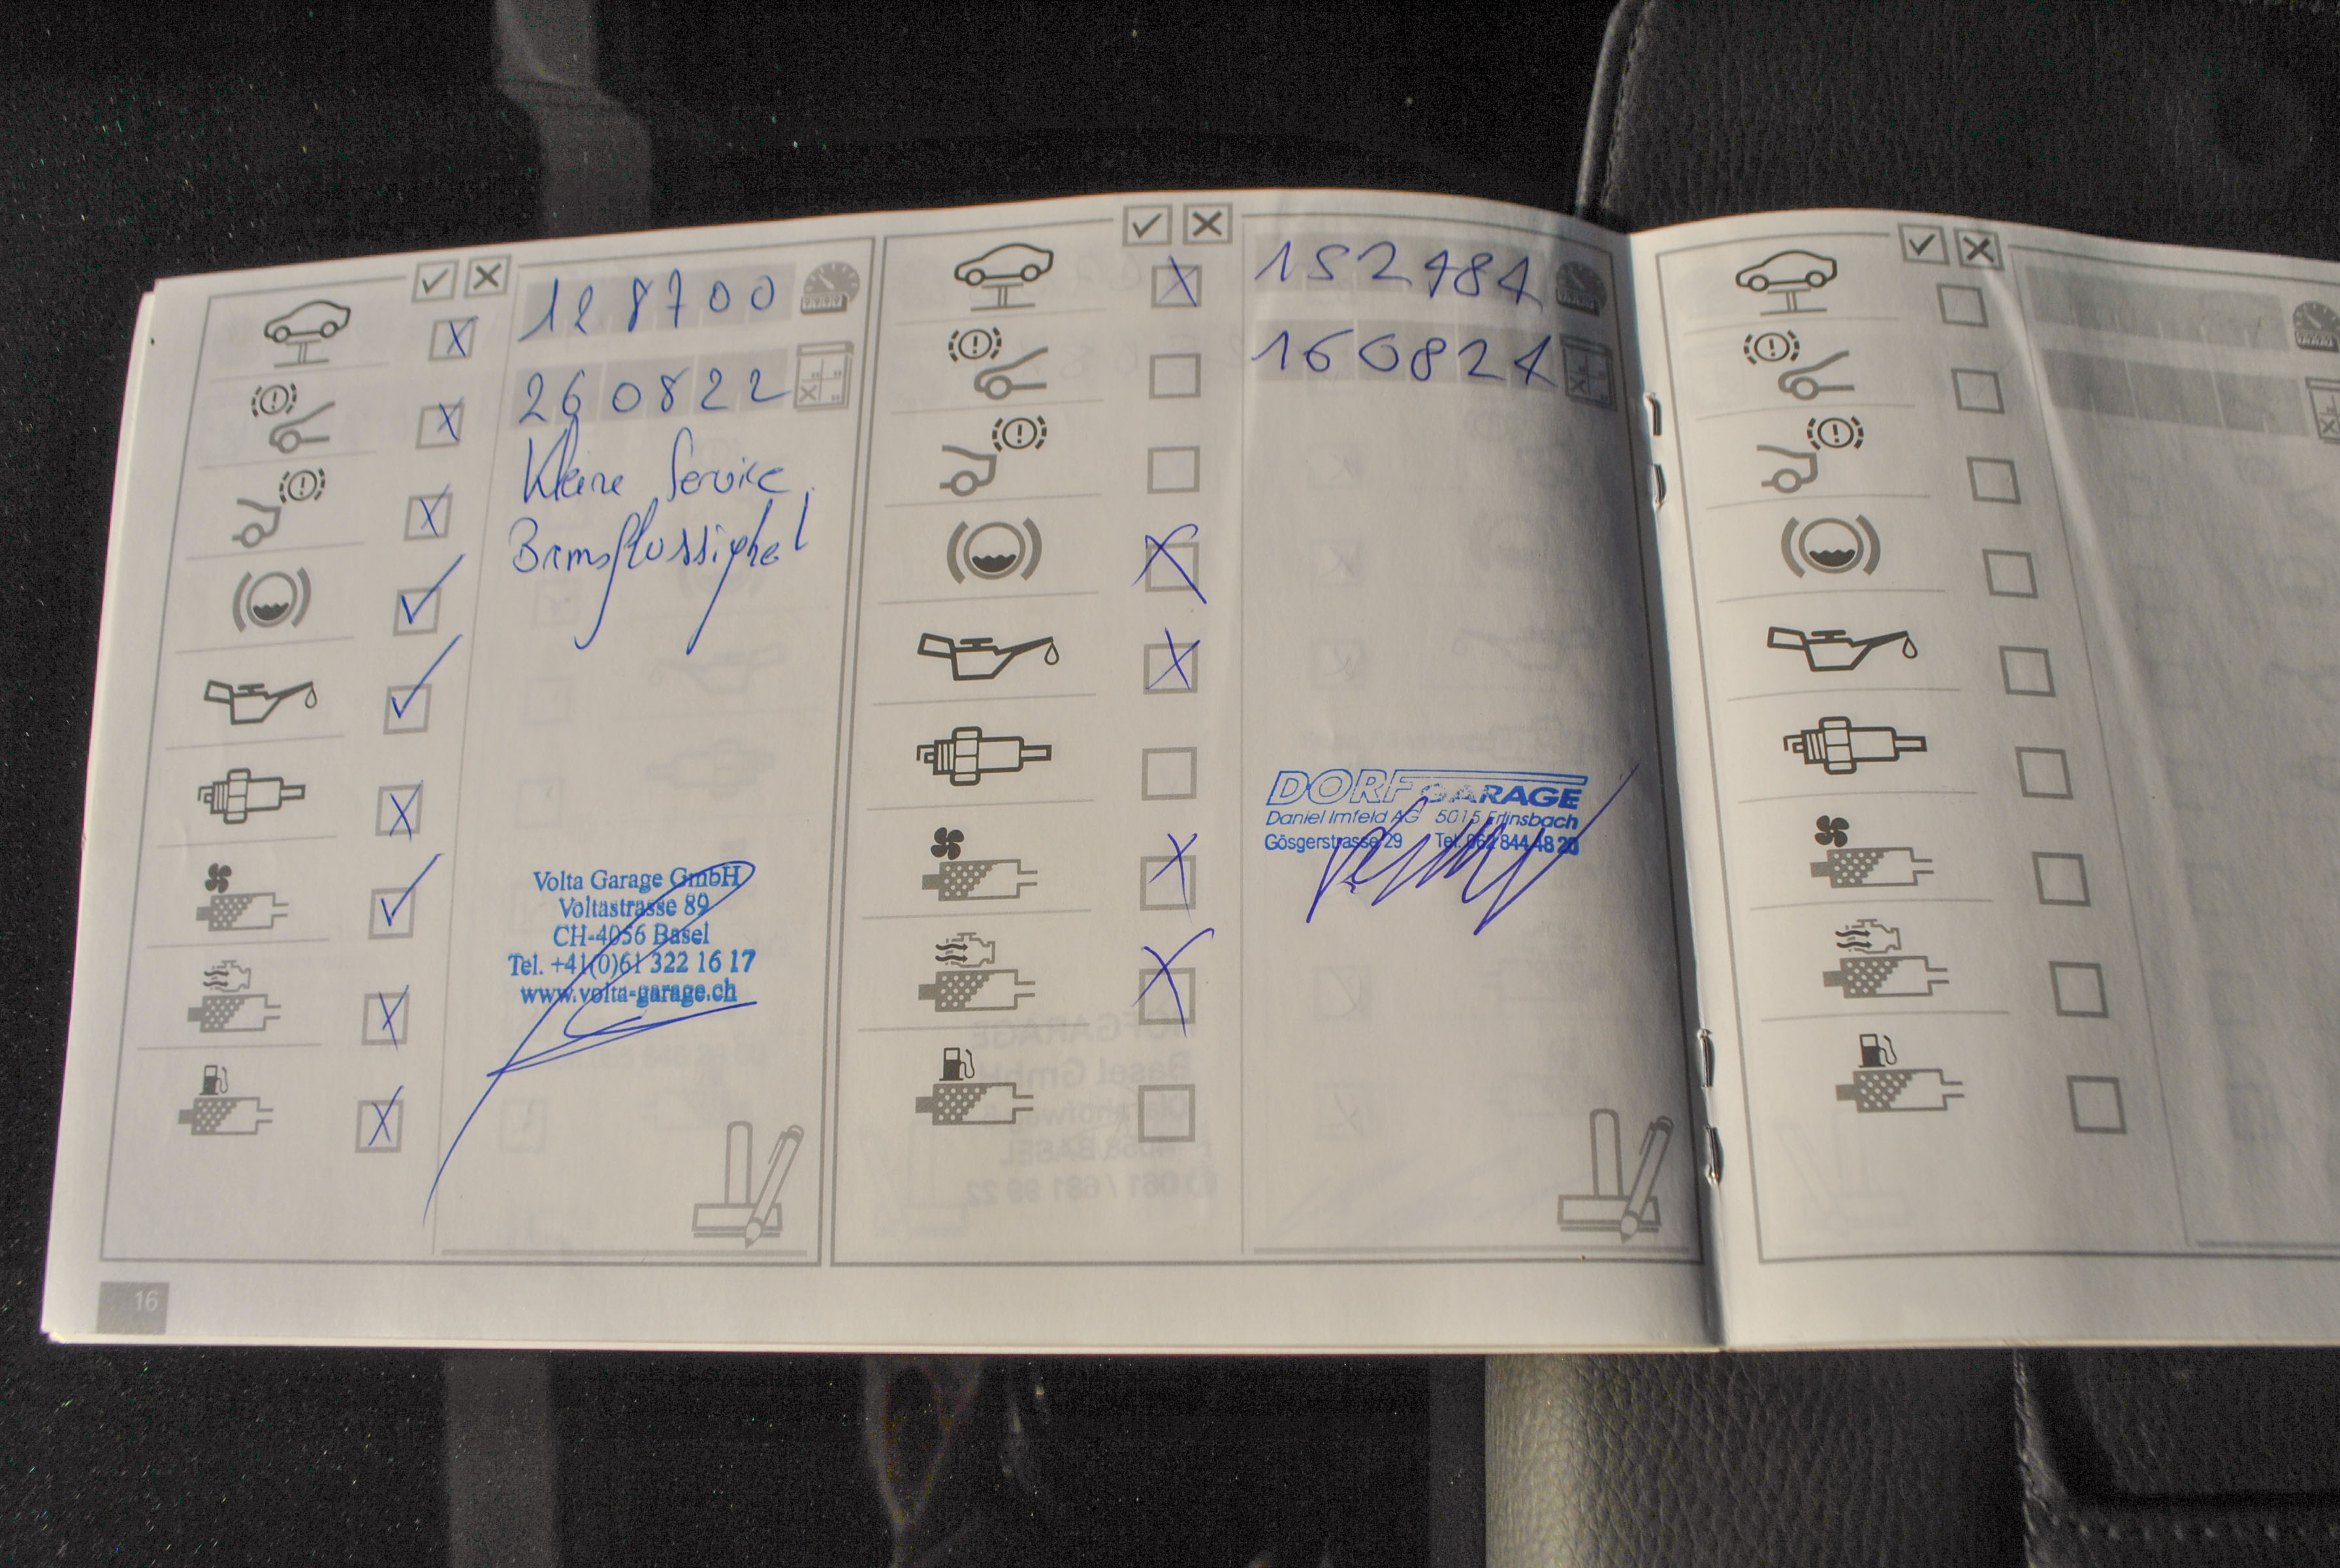 128700
260822
Kleine Service
Bremsflussigkeit
Volta Garage GmbH
Voltastrasse 89
CH-4056 Basel
Tel. +41(0)61 322 16 17
www.volta-garage.ch
16
152484
160824
DORFGARAGE
Daniel Imfeld AG 5015 Erlinsbach
Gösgerstrasse 29 Tel. 062 844 48 20